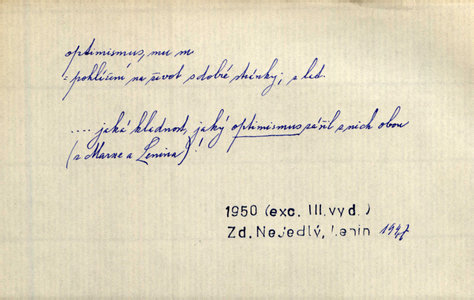 optimismus, mu m
= pohlížení na život s dobré stránky; a led.
.... jaká klidnost, jaký optimismus zářil s nich obou
(z Marxe a Lenina)!
1950 (exc. III. vyd.)
Zd. Nejedlý, Lenin 1947